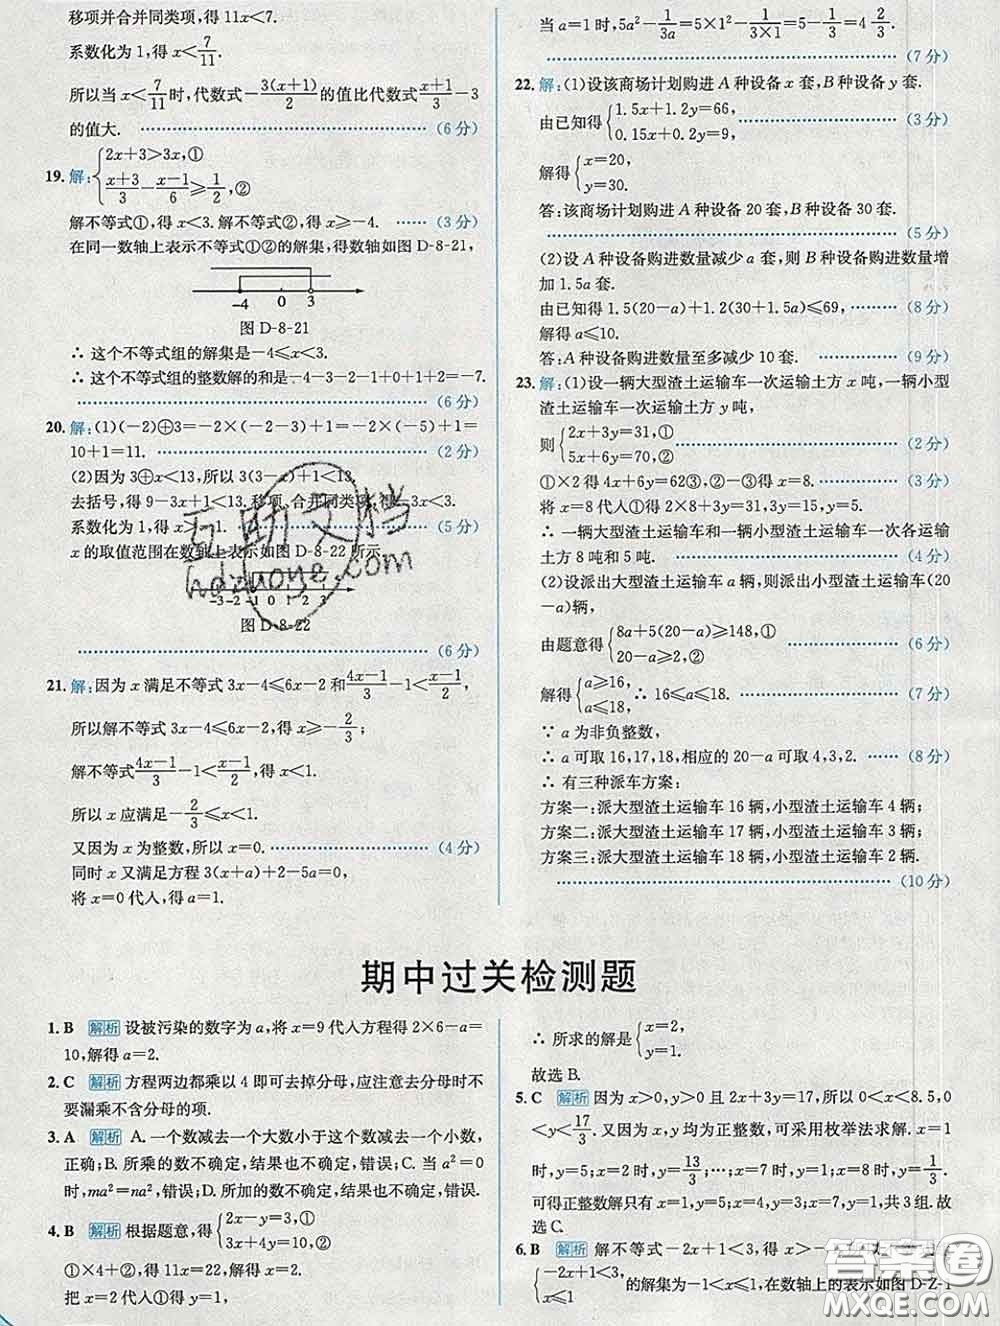 移项并合并同类项,得11x<7.
系数化为1,得x<7/11.
所以当x<7/11时,代数式-3(x+1)/2的值比代数式(x+1)/3-3
的值大. (6分)
19. 解:{2x+3>3x,①
(x+3)/3-(x-1)/6≥1/2,②
解不等式①,得x<3.解不等式②,得x≥-4. (3分)
在同一数轴上表示不等式①②的解集,得数轴如图D-8-21,
-4 0 3
图D-8-21
∴ 这个不等式组的解集是-4≤x<3.
∴ 这个不等式组的整数解的和是-4-3-2-1+0+1+2=-7.
(6分)
20. 解:(1)(-2)⊕3=-2×(-2-3)+1=-2×(-5)+1=
10+1=11. (2分)
(2)因为3⊕x<13,所以3(3-x)+1<13,
去括号,得9-3x+1<13,移项、合并同类项,得-3x<3.
系数化为1,得x>-1. (5分)
x的取值范围在数轴上表示如图D-8-22所示
-3 -2 -1 0 1 2 3
图D-8-22
(6分)
21. 解:因为x满足不等式3x-4≤6x-2和(4x-1)/3-1<(x-1)/2,
所以解不等式3x-4≤6x-2,得x≥-2/3;
解不等式(4x-1)/3-1<(x-1)/2,得x<1.
所以x应满足-2/3≤x<1.
又因为x为整数,所以x=0. (4分)
同时x又满足方程3(x+a)+2=5a,
将x=0代入,得a=1.
当a=1时,5a²-1/(3a)=5×1²-1/(3×1)=5-1/3=4 2/3.
(7分)
22. 解:(1)设该商场计划购进A种设备x套,B种设备y套.
由已知得{1.5x+1.2y=66,
0.15x+0.2y=9, (3分)
解得{x=20,
y=30.
答:该商场计划购进A种设备20套,B种设备30套.
(5分)
(2)设A种设备购进数量减少a套,则B种设备购进数量增
加1.5a套.
由已知得1.5(20-a)+1.2(30+1.5a)≤69, (8分)
解得a≤10.
答:A种设备购进数量至多减少10套. (9分)
23. 解:(1)设一辆大型渣土运输车一次运输土方x吨,一辆小型
渣土运输车一次运输土方y吨,
则{2x+3y=31,①
5x+6y=70,② (2分)
①×2得4x+6y=62③,②-③得x=8. (3分)
将x=8代入①得2×8+3y=31,3y=15,y=5.
∴ 一辆大型渣土运输车和一辆小型渣土运输车一次各运输
土方8吨和5吨. (4分)
(2)设派出大型渣土运输车a辆,则派出小型渣土运输车(20
-a)辆,
由题意得{8a+5(20-a)≥148,①
20-a≥2,② (6分)
解得{a≥16,
a≤18, ∴ 16≤a≤18. (7分)
∵ a为非负整数,
∴ a可取16,17,18,相应的20-a可取4,3,2. (8分)
∴ 有三种派车方案:
方案一:派大型渣土运输车16辆,小型渣土运输车4辆;
方案二:派大型渣土运输车17辆,小型渣土运输车3辆;
方案三:派大型渣土运输车18辆,小型渣土运输车2辆.
(10分)
互助文档
hdzuoye.com
期中过关检测题
1. B 解析 设被污染的数字为a,将x=9代入方程得2×6-a=
10,解得a=2.
2. C 解析 方程两边都乘以4即可去掉分母,应注意去分母时不
要漏乘不含分母的项.
3. A 解析 A.一个数减去一个大数小于这个数减去一个小数,
正确;B.所乘的数不确定,结果也不确定,错误;C.当a²=0
时,ma²=na²,错误;D.所加的数不确定,结果也不确定,错误.
4. B 解析 根据题意,得{2x-y=3,①
3x+4y=10.②
①×4+②,得11x=22,解得x=2.
把x=2代入①得y=1,
∴ 所求的解是{x=2,
y=1.
故选B.
5. C 解析 因为x>0,y>0且2x+3y=17,所以0<x<8.5,0
<y<17/3.又因为x,y均为正整数,可采用枚举法求解.x=1
时,y=5;x=2时,y=13/3;…;x=7时,y=1;x=8时,y=1/3.
可得正整数解只有x=1,y=5;x=4,y=3;x=7,y=1,共3组.故
选C.
6. B 解析 解不等式-2x+1<3,得x>-1,
{-2x+1<3,
x≤1 的解集为-1<x≤1,在数轴上的表示如图D-Z-1
答案圈
MXQE.COM